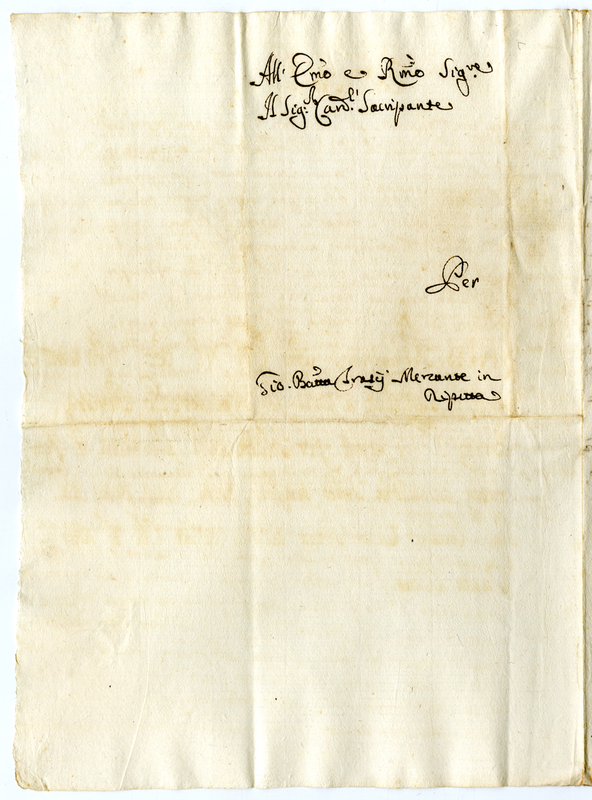 All' Emo e Rmo Sigre
Il Sigr Cardl Sacripante
Per
Gio. Batta Mercante in
Ripetta